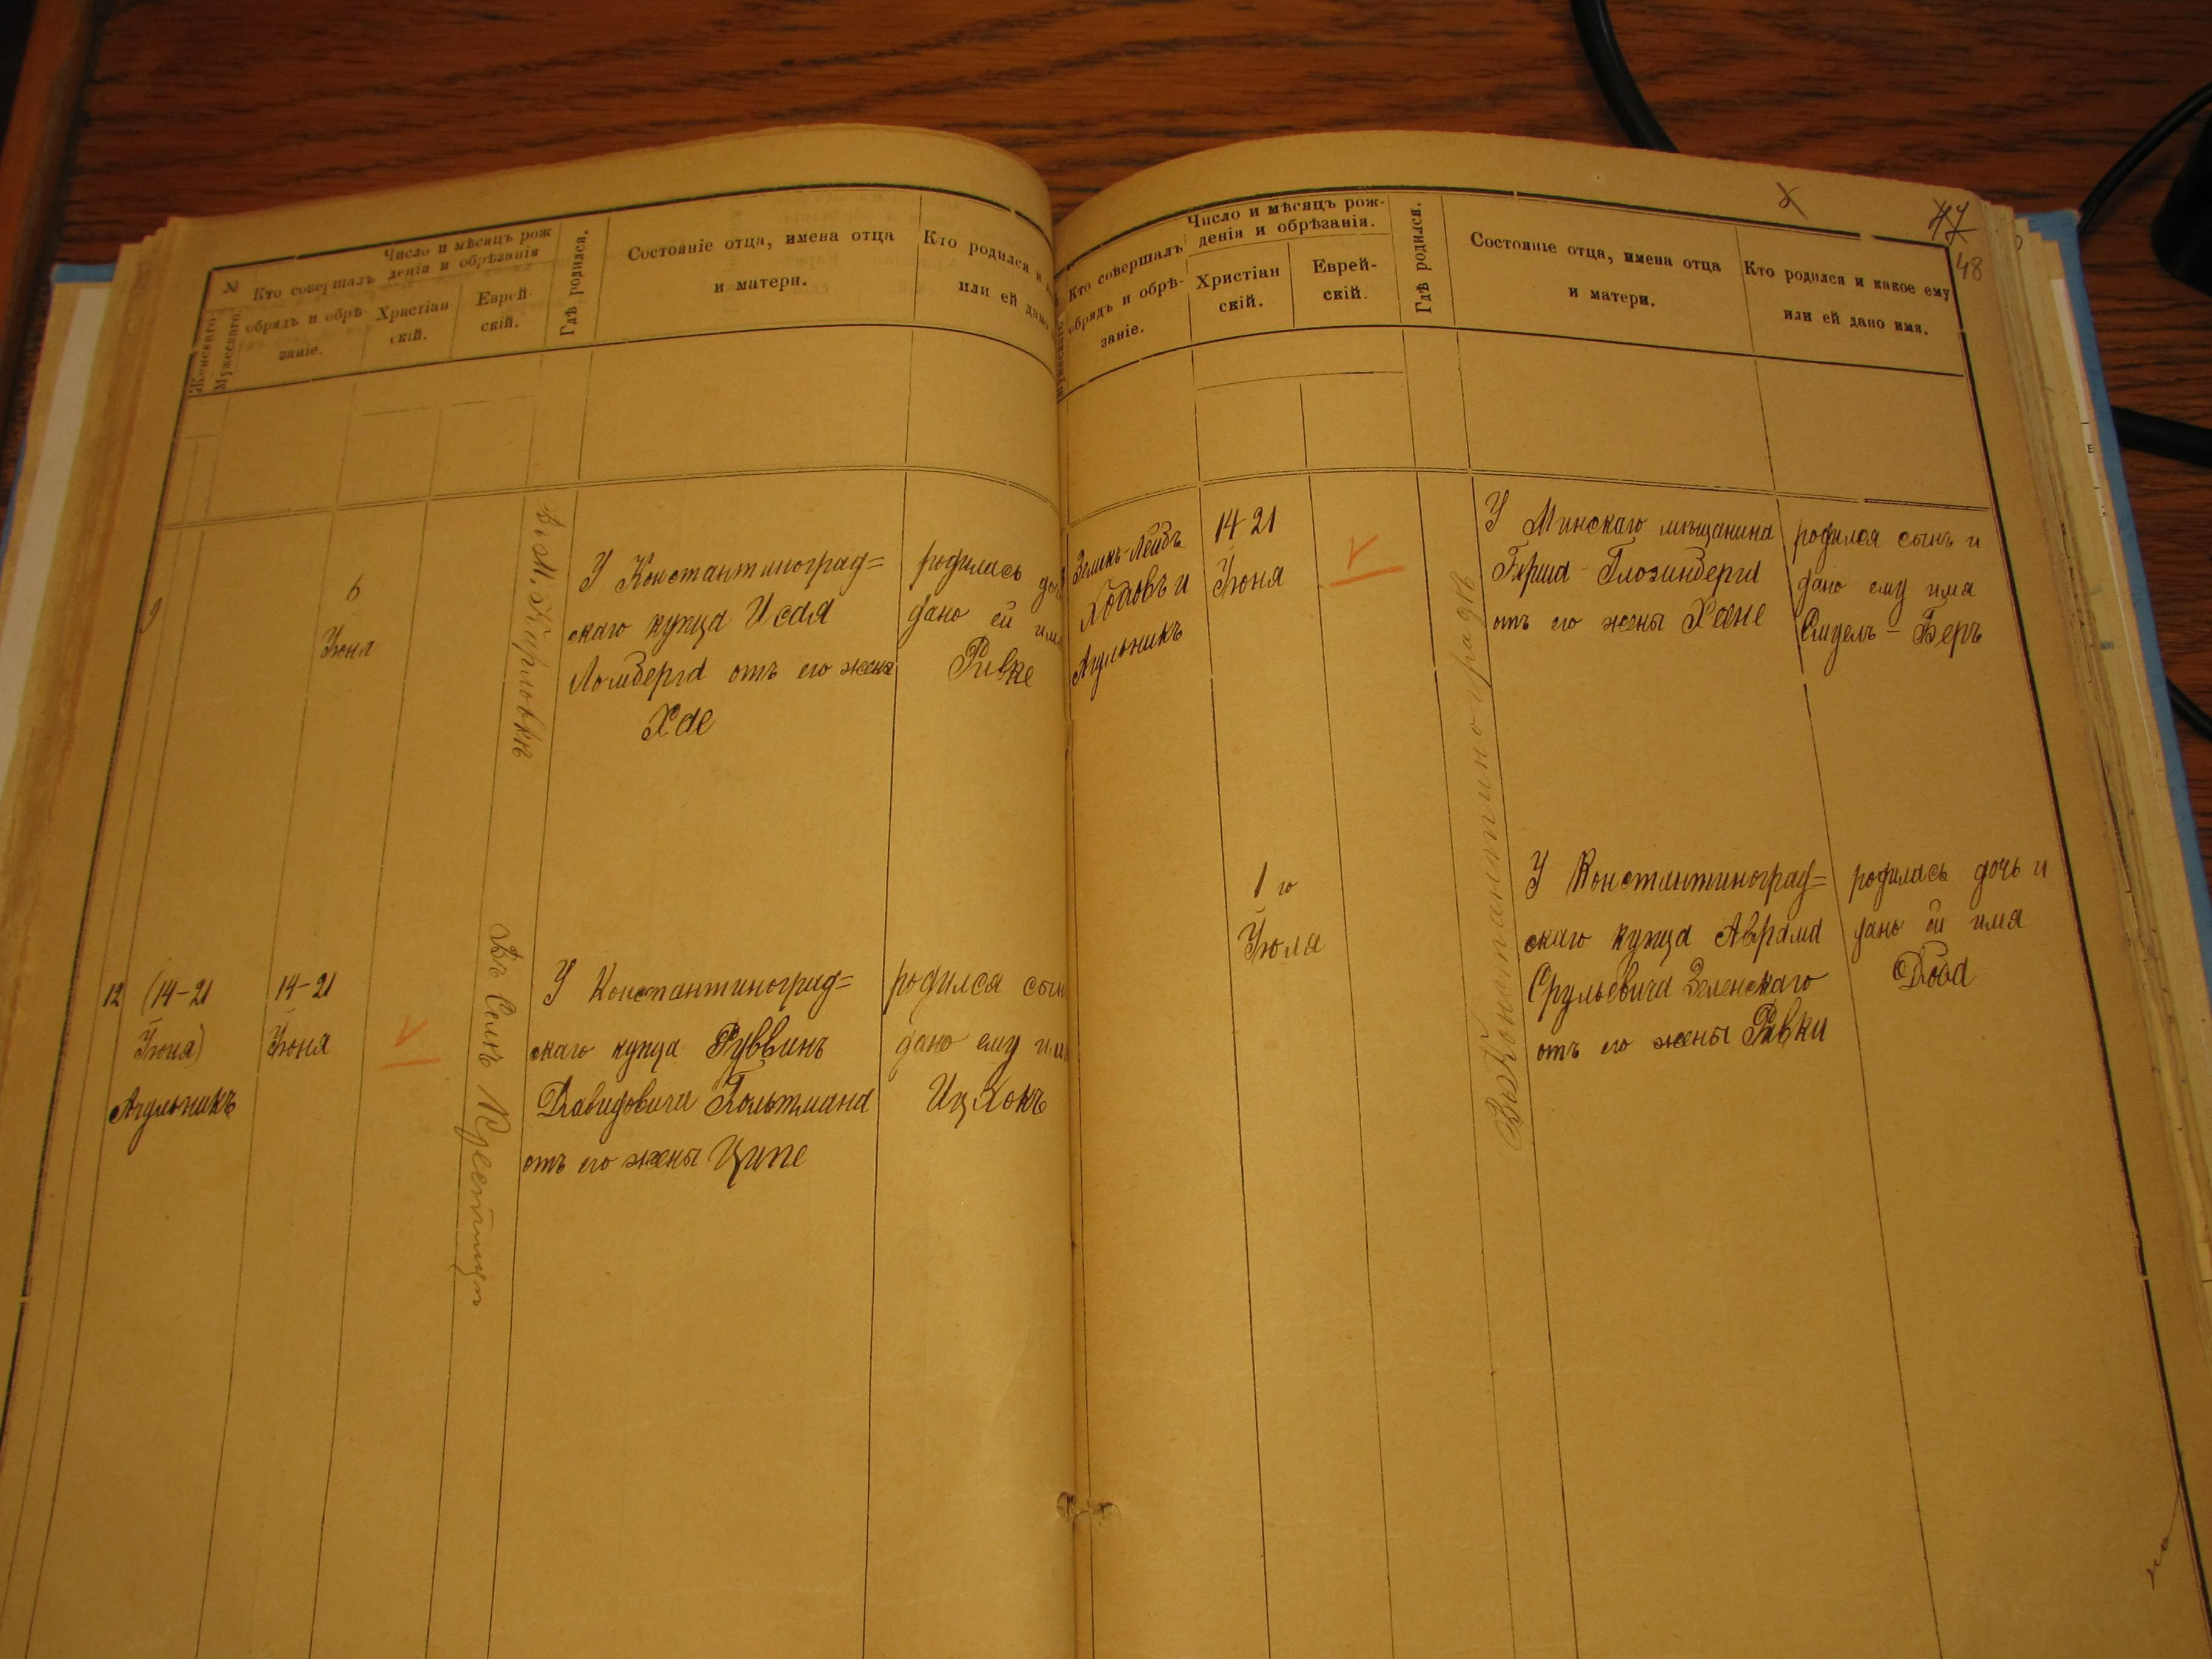 №
Кто совершалъ
обрядъ и обрѣ-
заніе.
Число и мѣсяцъ рож
денія и обрѣзанія
Христіан
скій.
Еврей-
скій.
Гдѣ родился.
Состояніе отца, имена отца
и матери.
Кто родился и
или ей дано
Женскаго
Мужескаго
9
6
Іюня
Въ М. Карловкѣ
У Константиноград=
скаго купца Исая
Ломберга отъ его жены
Хае
родилась доч
дано ей имя
Ривке
12
(14-21
Іюня)
Агульникъ
14-21
Іюня
Въ Селѣ
У Константиноград=
скаго купца Руввинъ
Давидовича Гольтмана
отъ его жены Ципе
родился сынъ
дано ему имя
Ицхокъ
Мужескаго
Кто совершалъ
обрядъ и обрѣ-
заніе.
Число и мѣсяцъ рож-
денія и обрѣзанія.
Христіан
скій.
Еврей-
скій.
Гдѣ родился.
Состояніе отца, имена отца
и матери.
Кто родился и какое ему
или ей дано имя.
47
48
Зеликъ-Лейбъ
и
Агульникъ
14-21
Іюня
Въ Константиноградѣ
У Минскаго мѣщанина
Гирша Глозинберга
отъ его жены Хане
родился сынъ и
дано ему имя
Беръ
1 го
Іюля
У Константиноград=
скаго купца Аврама
Срульевича Зеленскаго
отъ его жены Ривки
родилась дочь и
дано ей имя